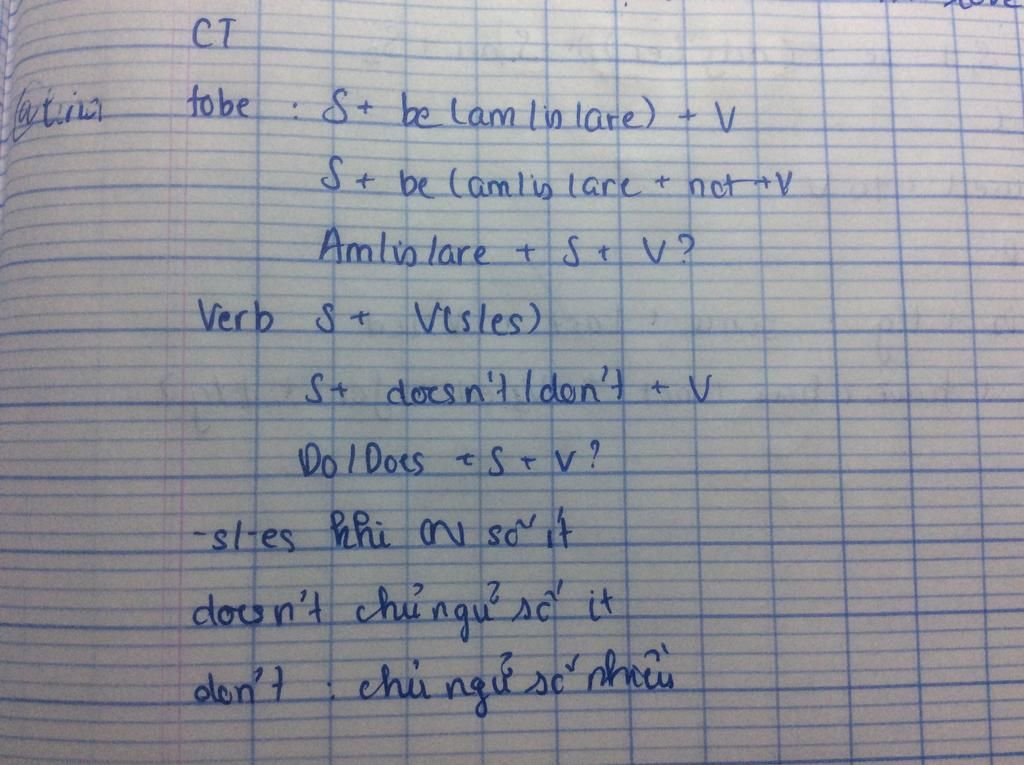 CT
tobe : S + be (am/is/are) + V
S + be (am/is/are + not + V
Am/is/are + S + V?
Verb S + V(s/es)
S + doesn't/don't + V
Do/Does + S + V?
-s/-es khi CN số ít
doesn't chủ ngữ số ít
don't : chủ ngữ số nhiều